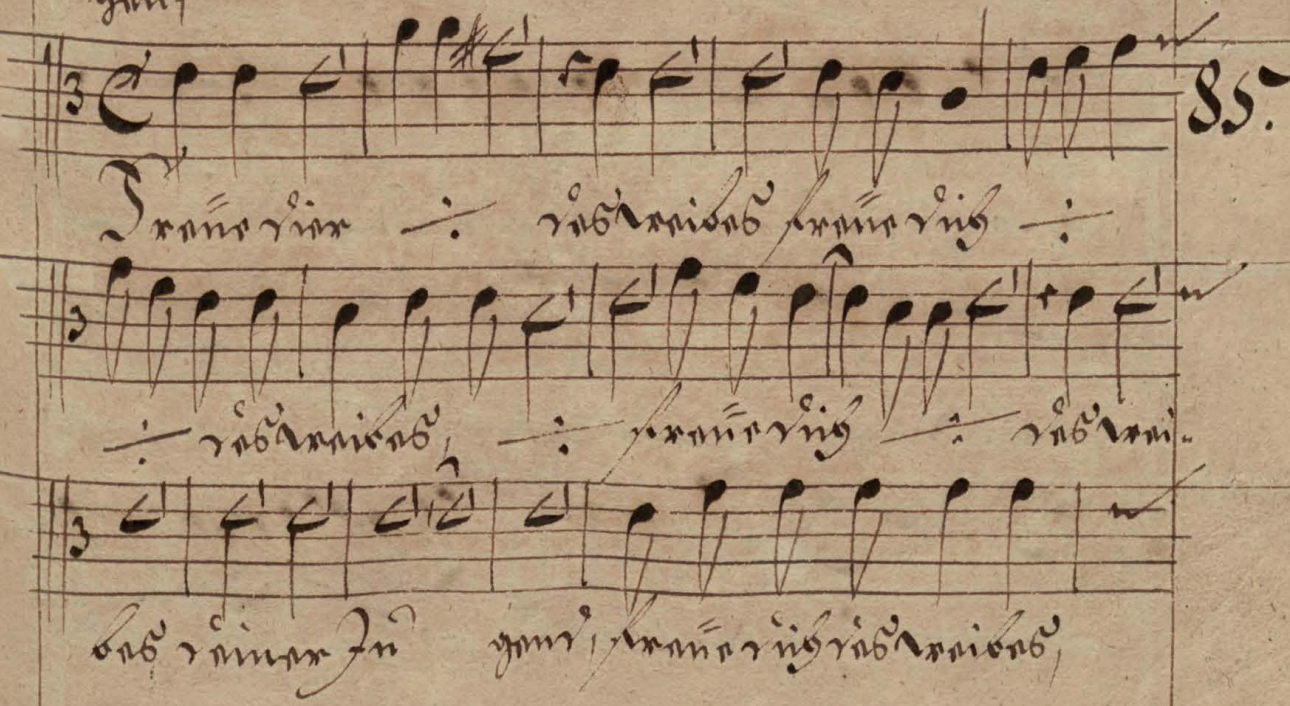 gend,
85.
Freüe dich ./. des weibes freüe dich ./.
./. des weibes, ./. freüe dich ./. des wei-
bes deiner Ju gend, freüe dich des weibes,